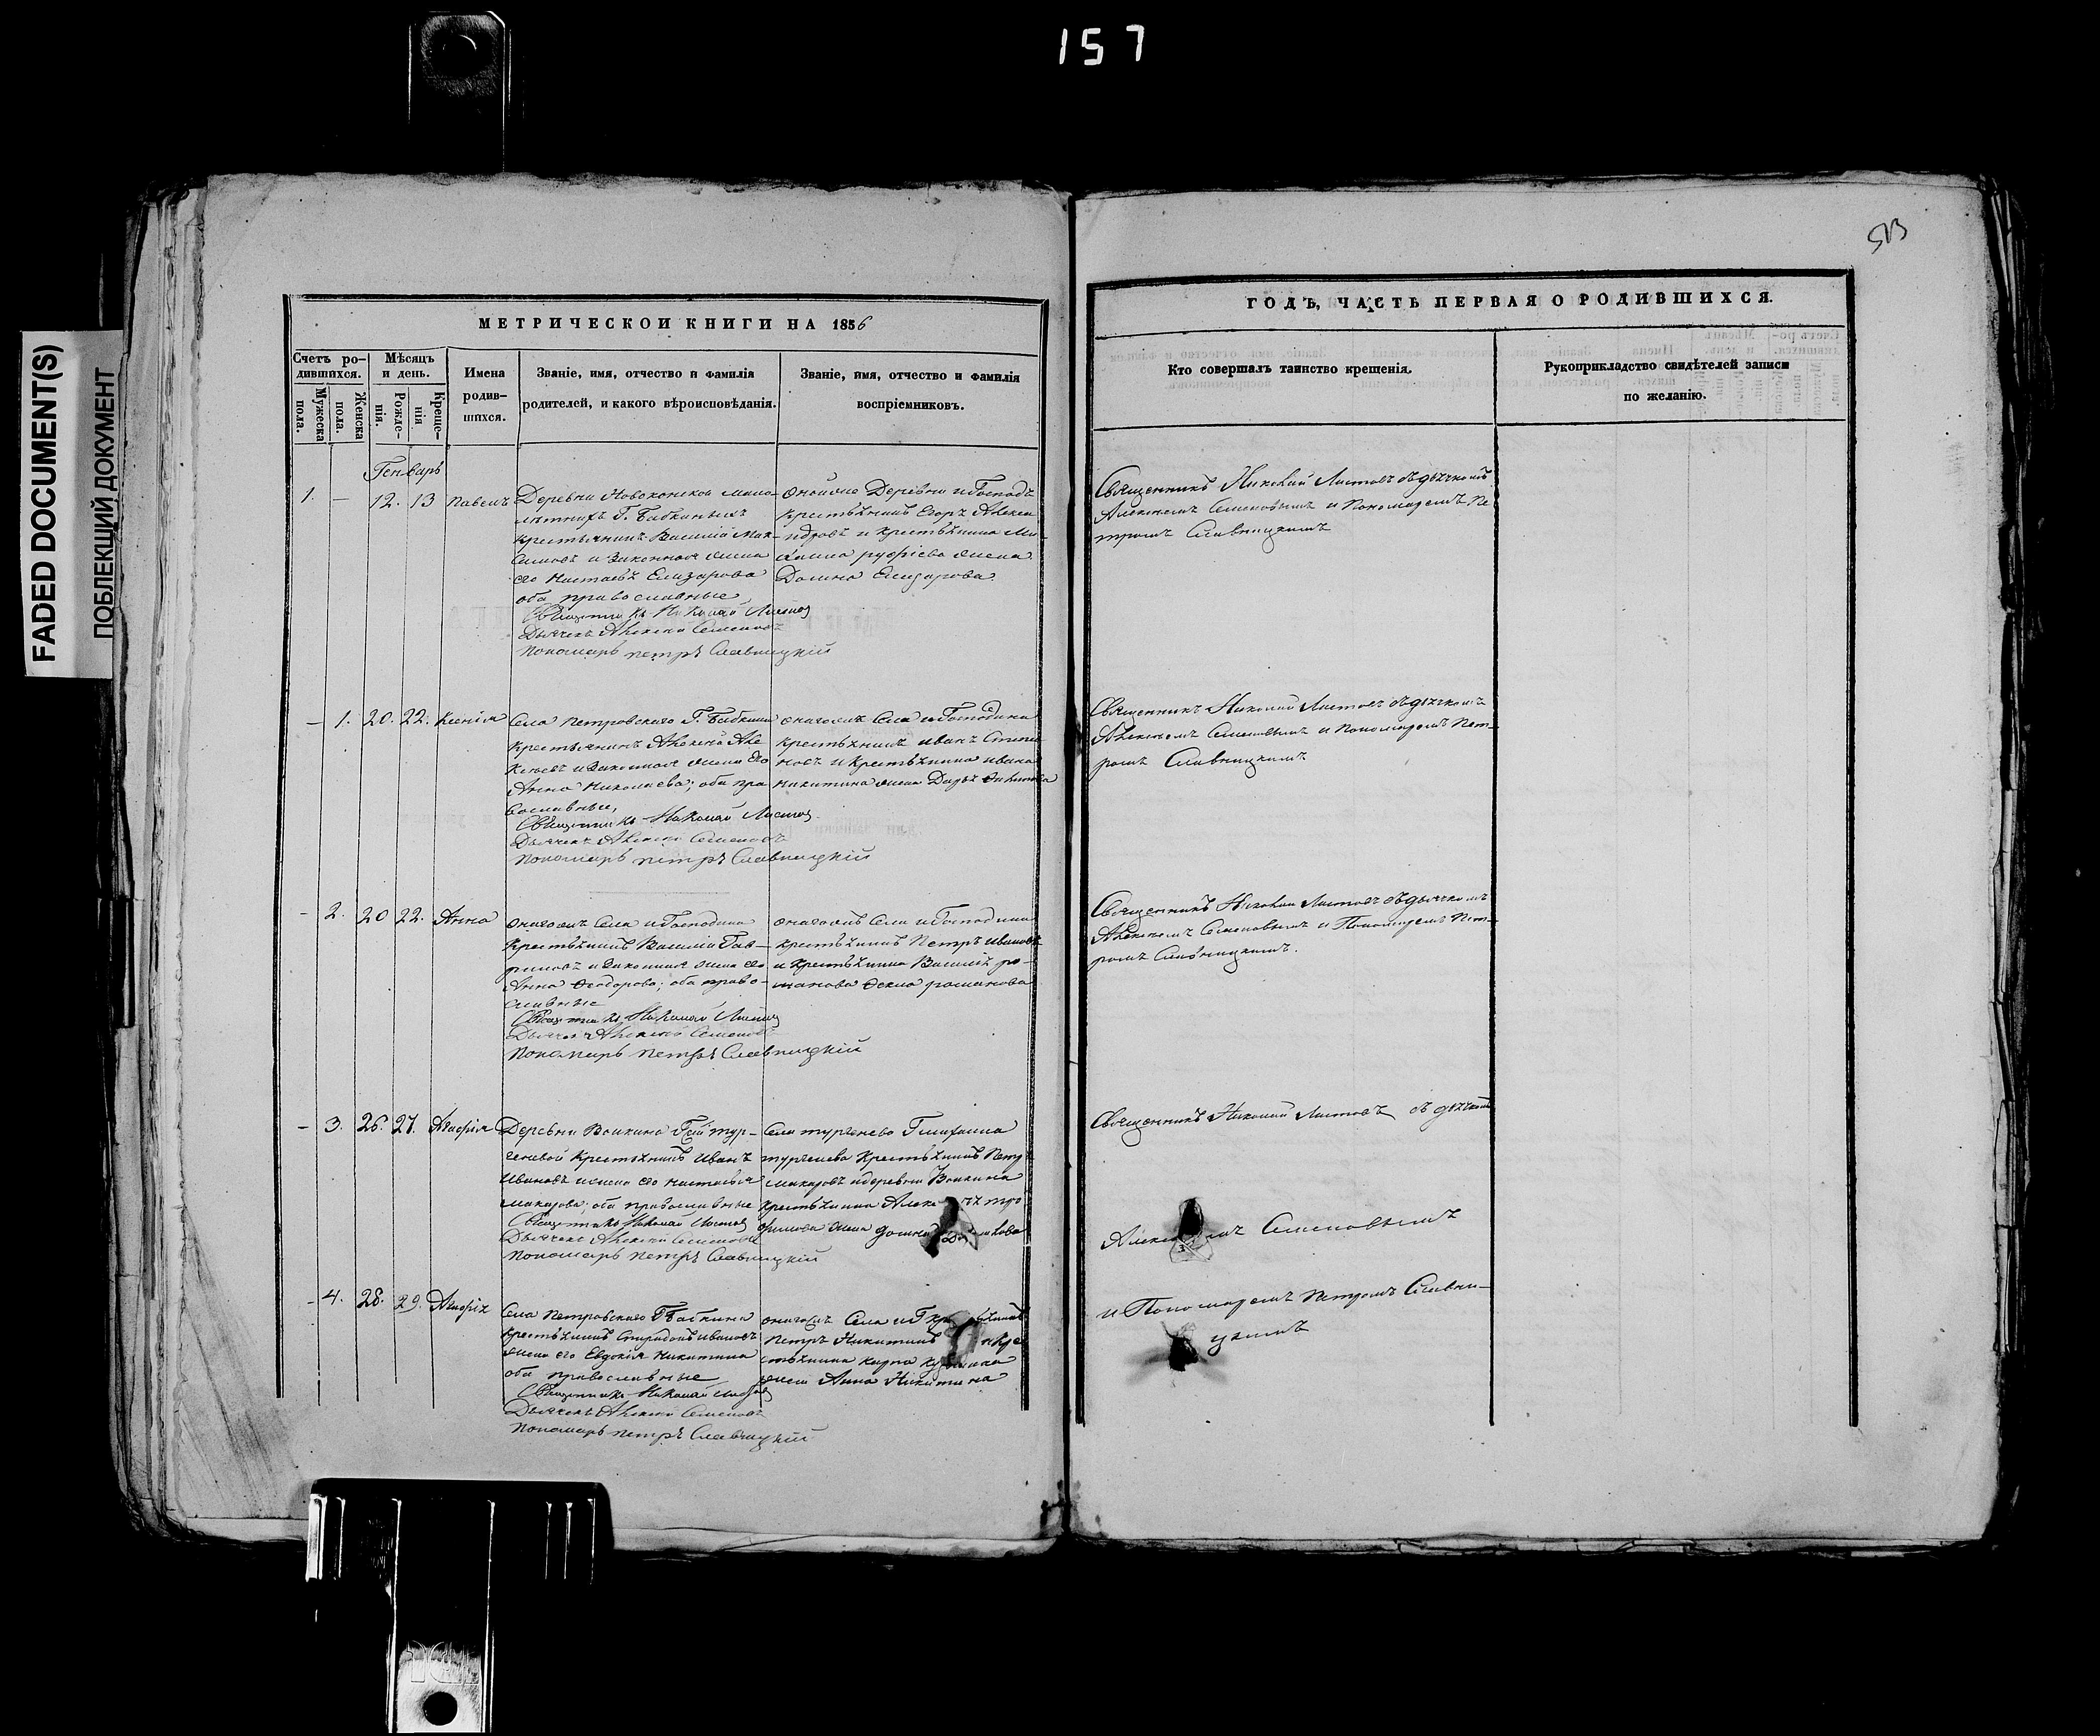 157
513
FADED DOCUMENT(S)
ПОБЛЕКЩИЙ ДОКУМЕНТ
МЕТРИЧЕСКОЙ КНИГИ НА 1856
Счетъ родившихся.
Мужеска пола.
Женска пола.
Мѣсяцъ и день.
Рожденія.
Крещенія
Имена родившихся.
Званіе, имя, отчество и фамилія
родителей, и какого вѣроисповѣданія.
Званіе, имя, отчество и фамилія
воспріемниковъ.
Генварь
1. — 12. 13 Павелъ
Деревни
крестьянинъ Василій Мак-
симовъ и законная жена
его Елизарова
оба православные
Священникъ Николай Листов
Дьячекъ Алексей Семеновъ
Пономарь Петръ Славницкій
оной же Деревни и Господъ
крестьянинъ Егоръ Алекса
ндровъ и крестьянина
жена
Домна Елизарова
— 1. 20. 22. Ксенія
Села Петровскаго Г. Бабкина
крестьянинъ Алексей Але
ксеевъ и законная жена его
Анна Николаева; оба пра
вославные,
Священникъ Николай Листов
Дьячекъ Алексей Семеновъ
Пономарь Петръ Славницкій
онагожъ Села и Господина
крестьянинъ Иванъ Степа
новъ и крестьянина Ивана
Никитина жена Дарья
- 2. 20 22. Анна
онагожъ Села и Господина
крестьянинъ Василій Гав-
риловъ и законная жена его
Анна Феодорова; оба право-
славные
Священникъ Николай Листов
Дьячекъ Алексей Семеновъ
Пономарь Петръ Славницкій
онагожъ Села и Господина
крестьянинъ Петръ Ивановъ
и крестьянина Василія Ро-
манова Романова
- 3. 26. 27.
Деревни Воикина Тур-
геневой крестьянинъ Иванъ
Ивановъ и жена его Настасья
Макарова; оба православные
Священникъ Николай Листов
Дьячекъ Алексей Семеновъ
Пономарь Петръ Славницкій
Села Тургенево
Тургенева крестьянинъ Петръ
Макаровъ и деревни Воикина
крестьянина
жена Домна
- 4. 28. 29.
Села Петровскаго Г Бабкина
крестьянинъ Спиридонъ Ивановъ
жена его Евдокія Никитина
оба православные
Священникъ Николай Листов
Дьячекъ Алексей Семеновъ
Пономарь Петръ Славницкій
онагожъ Села и Г
Петръ Никитинъ и кре
стьянина Карпа
жена Анна Никитина
ГОДЪ, ЧАСТЬ ПЕРВАЯ О РОДИВШИХСЯ.
Кто совершалъ таинство крещенія.
Рукоприкладство свидѣтелей записи
по желанію.
Священникъ Николай Листовъ съ дьячкомъ
Алексеемъ Семеновымъ и Пономаремъ Пе
тромъ Славницкимъ
Священникъ Николай Листовъ съ дьячкомъ
Алексеемъ Семеновымъ и Пономаремъ Пет-
ромъ Славницкимъ
Священникъ Николай Листовъ съ дьячкомъ
Алексеемъ Семеновымъ и Пономаремъ Пет-
ромъ Славницкимъ.
Священникъ Николай Листовъ съ дьячкомъ
Семеновымъ
и Пономаремъ Петромъ Славни-
цкимъ